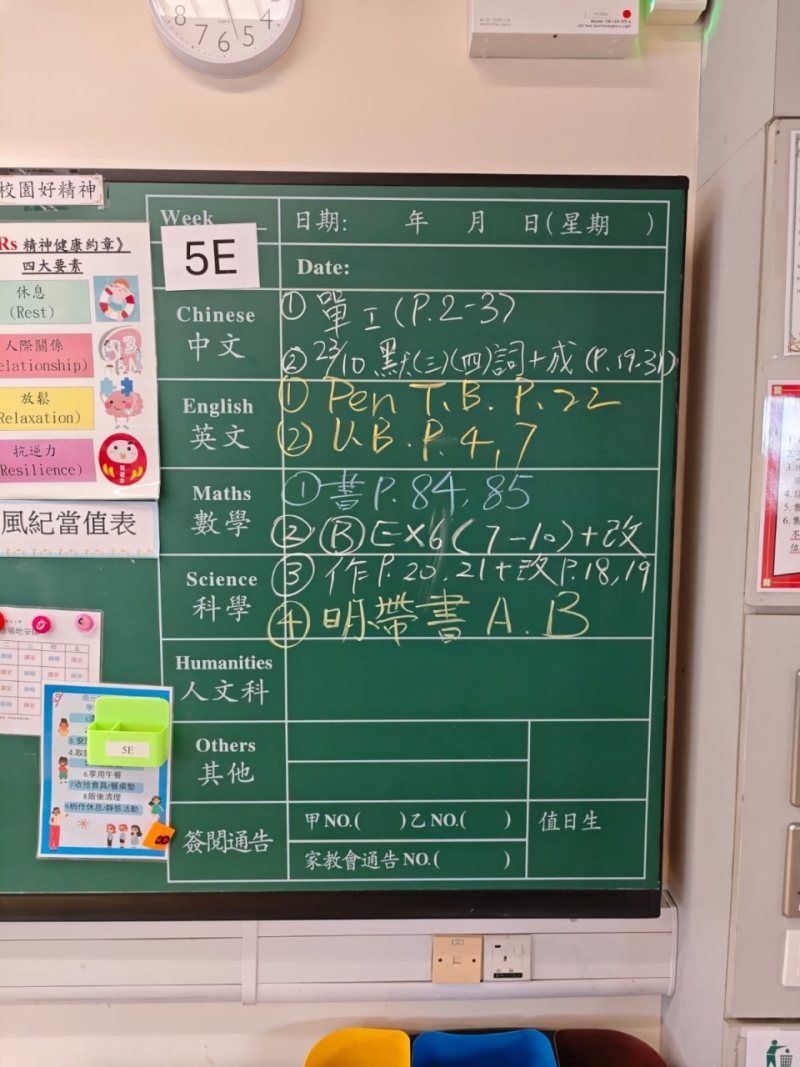 7 6 5 4
校園好精神
Rs 精神健康約章》
四大要素
休息
(Rest)
人際關係
elationship)
放鬆
Relaxation)
抗逆力
Resilience)
風紀當值表
5E
6.享用午餐
7.收拾食具/餐桌墊
8.飯後清理
9.稍作休息/靜態活動
Week
5E
日期: 年 月 日(星期 )
Date:
Chinese
中文
① 單工(P.2-3)
② 23/10 默(三)(四)詞+成(P.19-31)
English
英文
① Pen T.B. P.22
② U.B. P.4,7
Maths
數學
① 書P.84,85
② Ⓑ EX6(7-10)+改
Science
科學
③ 作P.20,21+改P.18,19
④ 明帶書 A.B
Humanities
人文科
Others
其他
簽閱通告
甲NO.( )乙NO.( )
家教會通告NO.( )
值日生